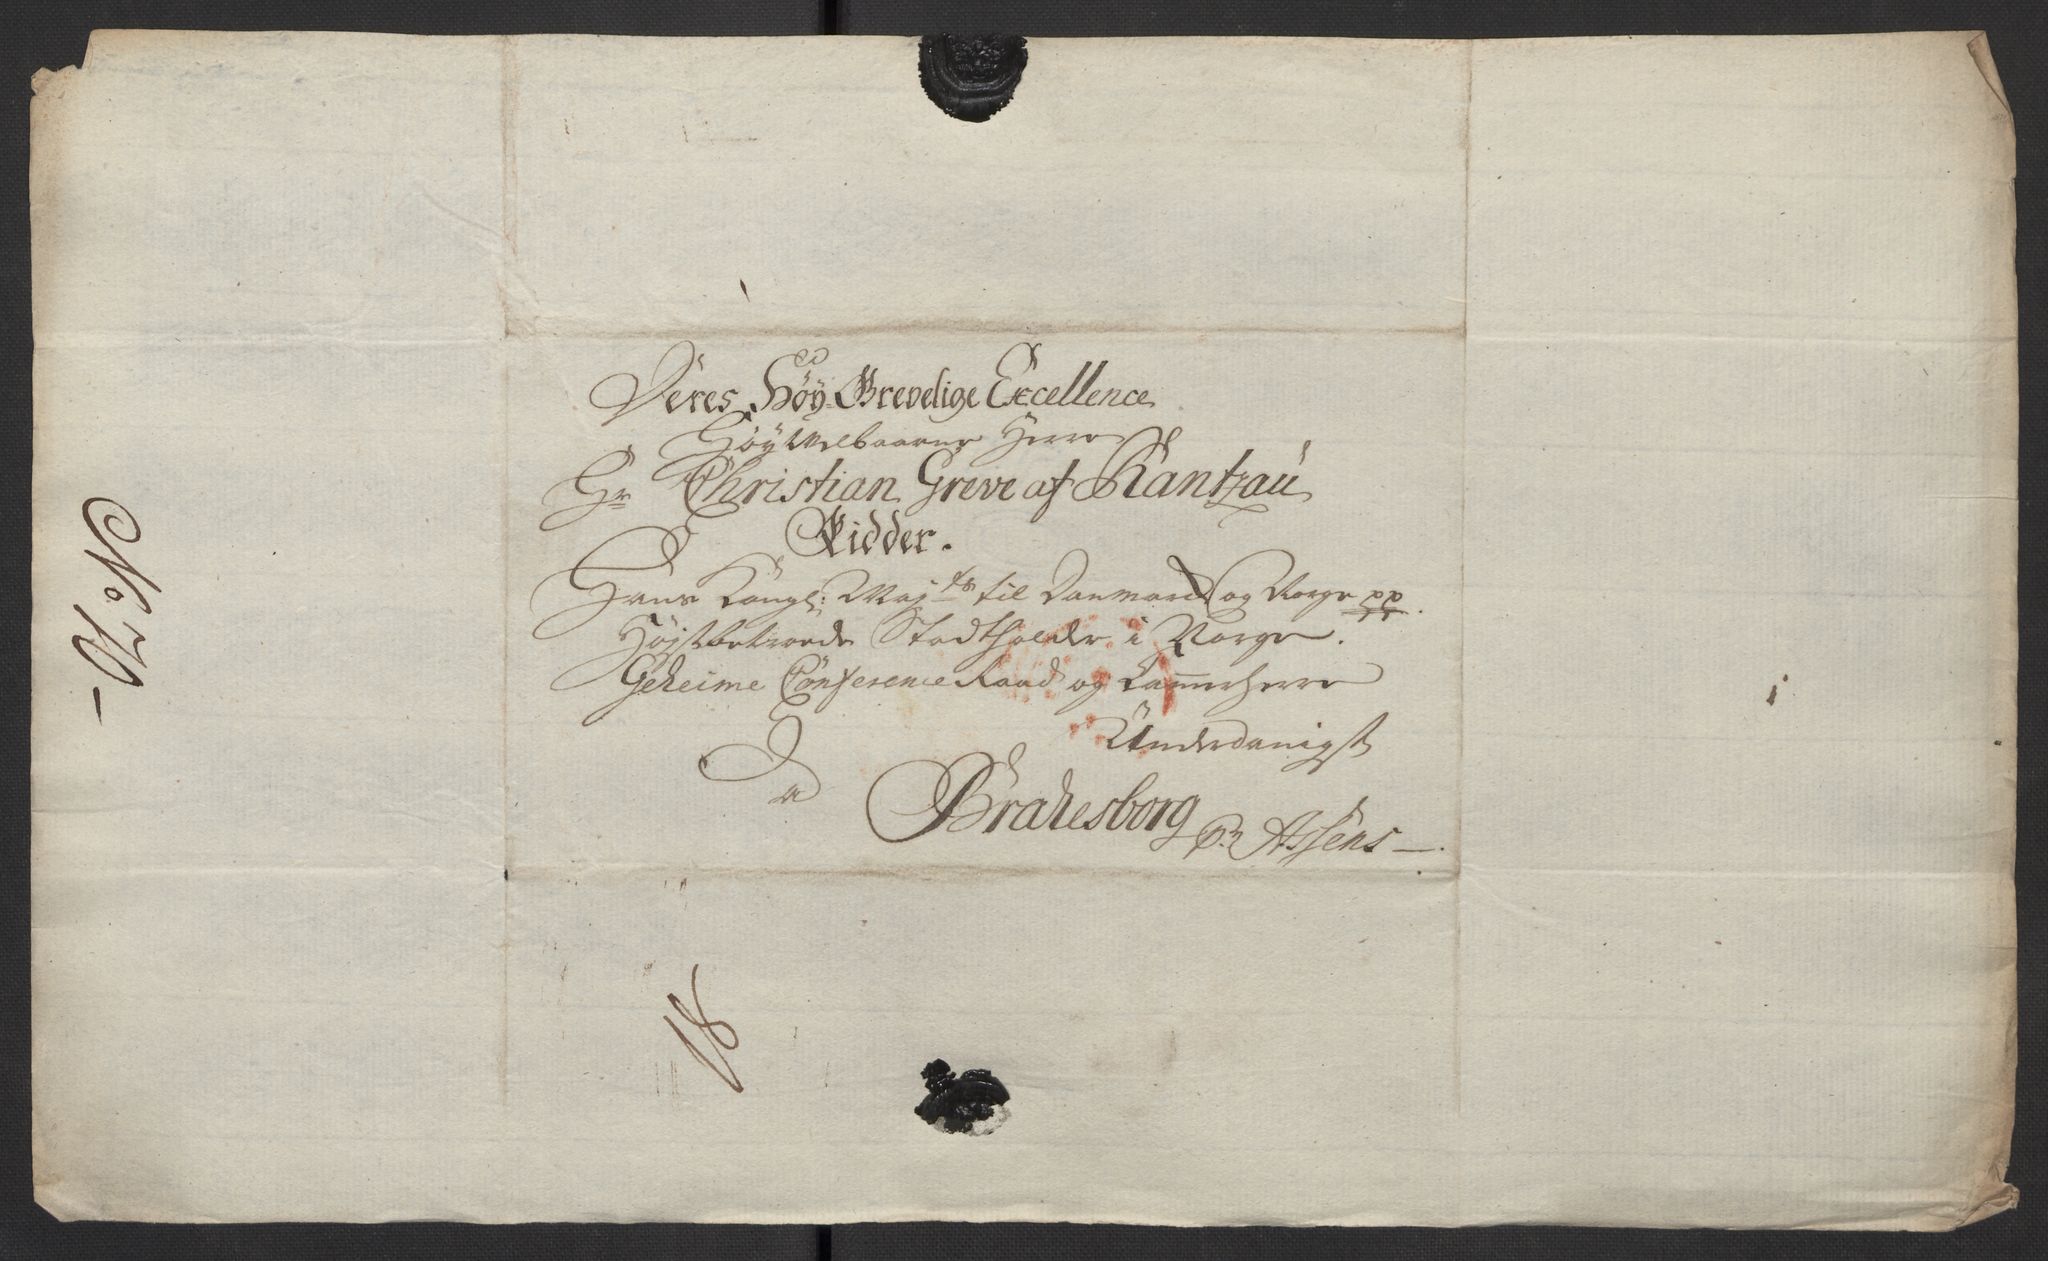 Deres Höy Grevelige Excellence
Höy Welbaarne Herre
Hr Christian Greve af Rantzau
Ridder.
Hans Kongl: Majts til Danmark og Norge pp.
Höystbetroede Stadtholder i Norge.
Geheime Conference Raad og Cammerherre
Underdanigst
a
Brahesborg pr Assens
18
No 20